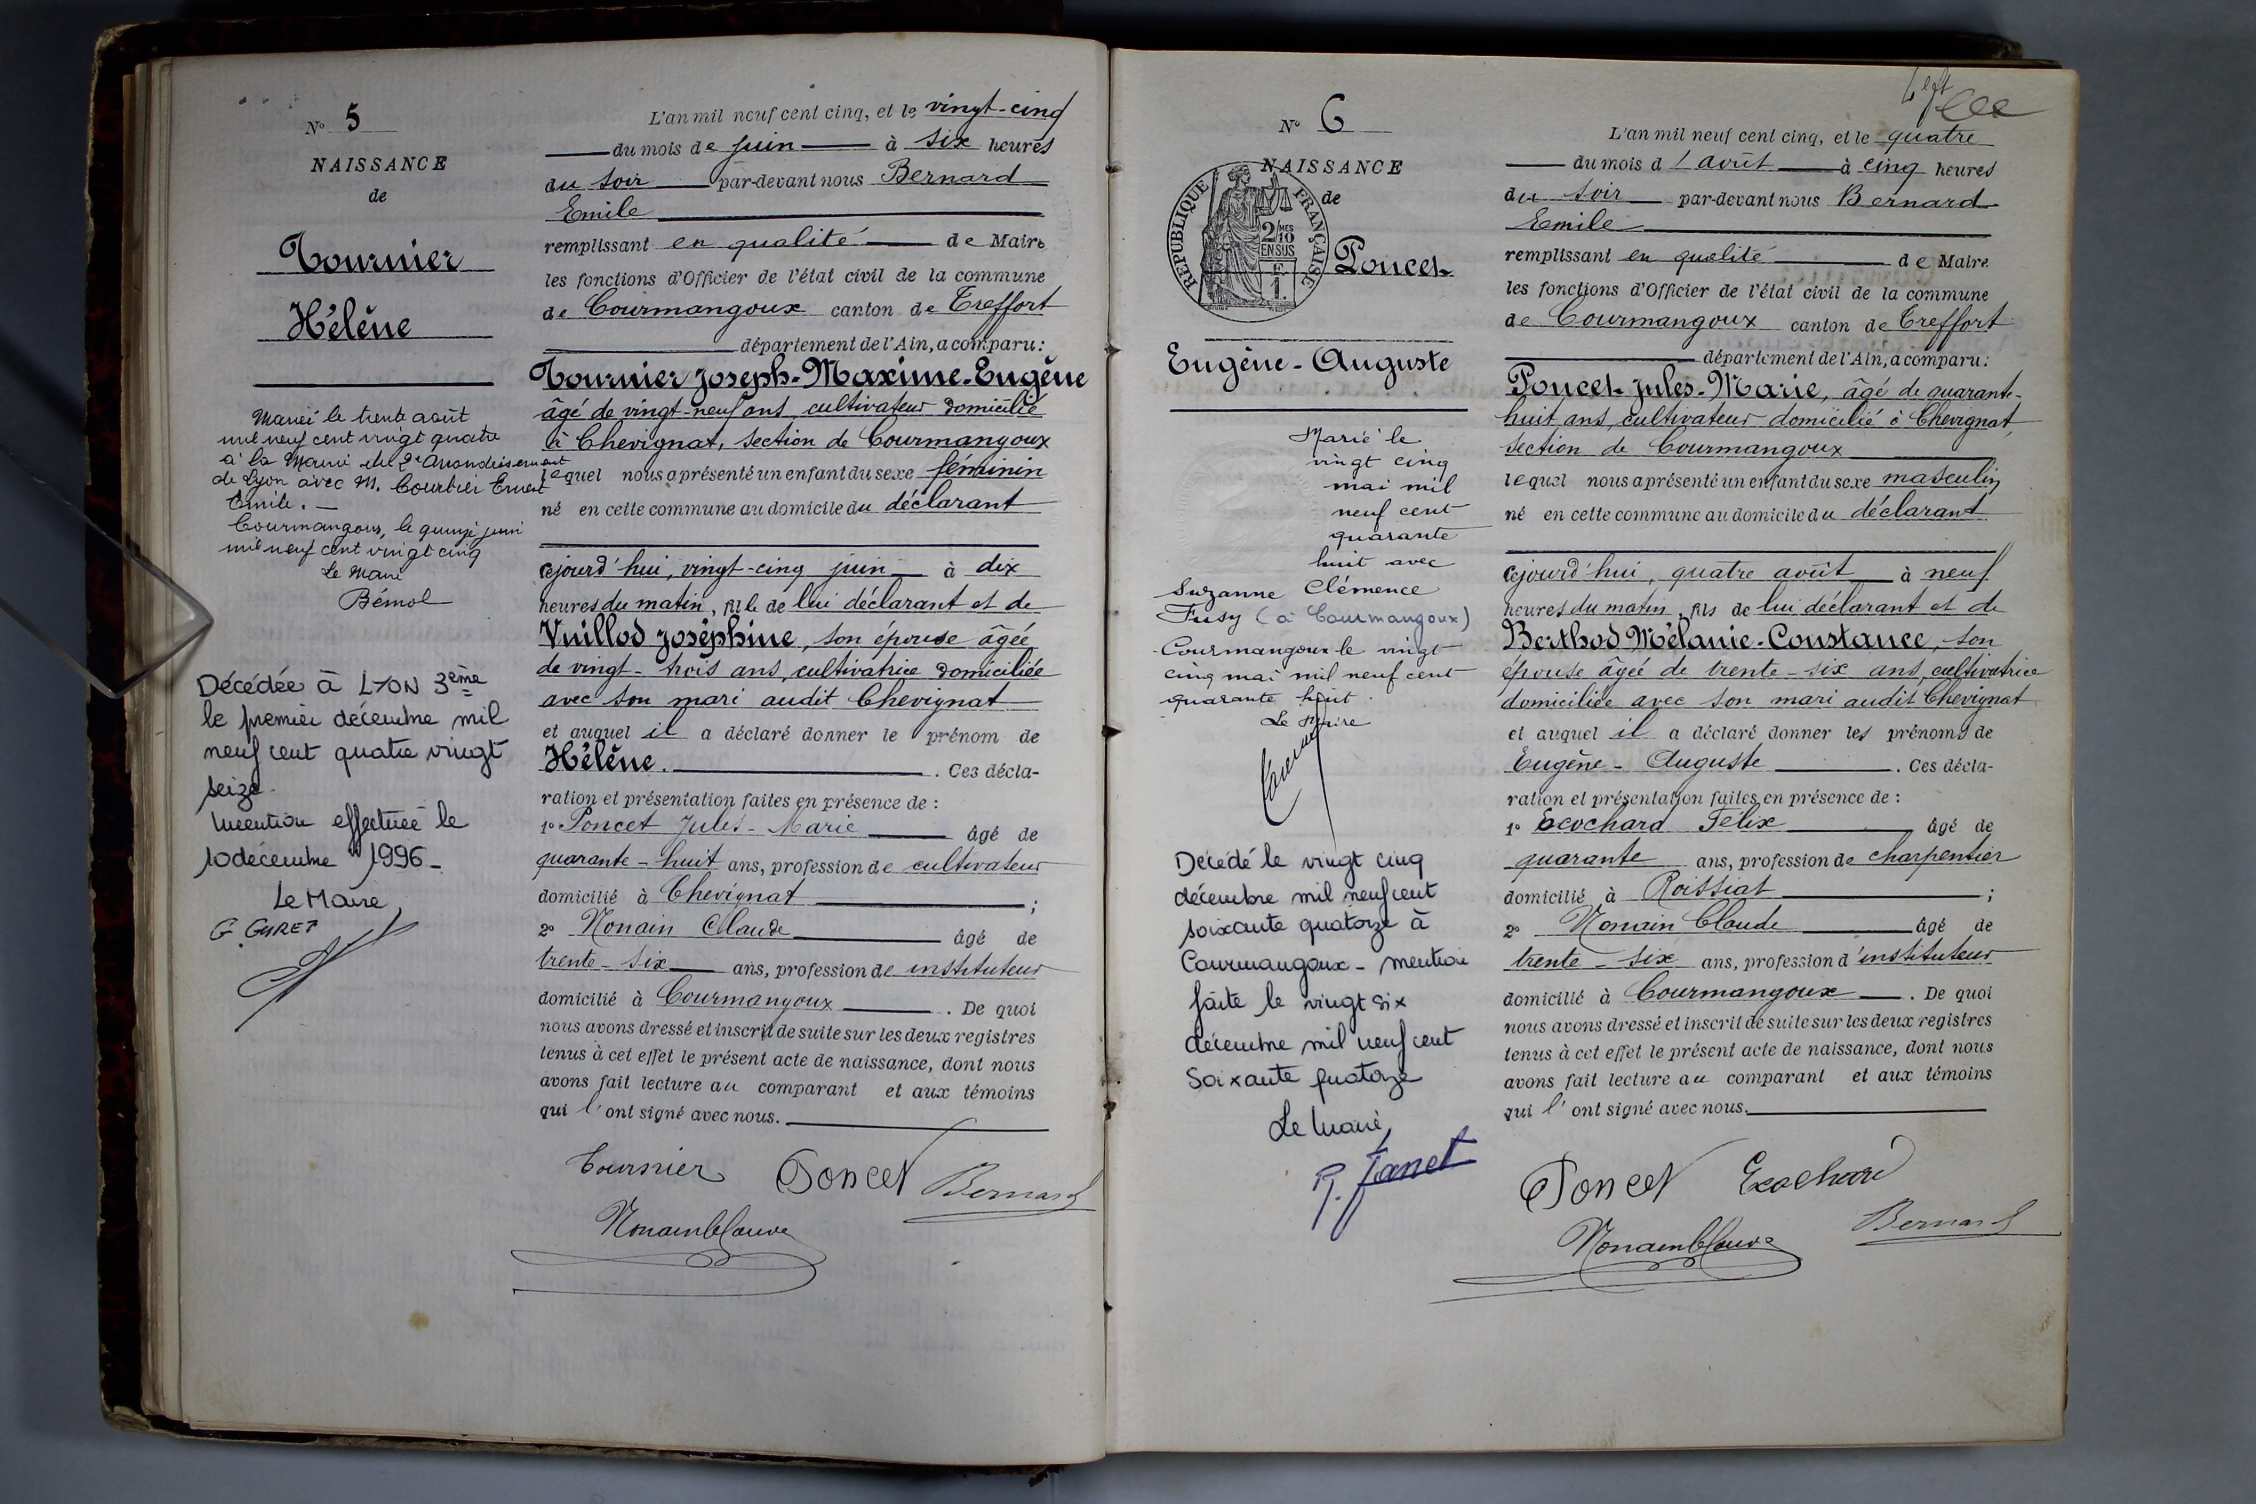 N° 5
NAISSANCE
de
Tournier
Hélène
Mariée le trente août
mil neuf cent vingt quatre
à la Mairie du 2e Arrondissement
de Lyon avec M. Courbier Ernest
Emile. —
Courmangoux, le quinze juin
mil neuf cent vingt cinq
Le Maire
Décédée à LYON 3ème
le premier décembre mil
neuf cent quatre vingt
seize
Mention effectuée le
10 décembre 1996 -
Le Maire,
G. GURET
L'an mil neuf cent cinq, et le vingt-cinq
du mois de juin à six heures
du soir par-devant nous Bernard
Emile
remplissant en qualité de Maire
les fonctions d'Officier de l'état civil de la commune
de Courmangoux canton de Treffort
département de l'Ain, a comparu :
Tournier Joseph-Maxime-Eugène
âgé de vingt-neuf ans, cultivateur domicilié
à Chevignat, section de Courmangoux
lequel nous a présenté un enfant du sexe féminin
né en cette commune au domicile du déclarant
cejourd'hui, vingt-cinq juin à dix
heures du matin, fille de lui déclarant et de
Vuillod Joséphine, son épouse âgée
de vingt-trois ans, cultivatrice domiciliée
avec son mari audit Chevignat
et auquel il a déclaré donner le prénom de
Hélène. . Ces décla-
ration et présentation faites en présence de :
1° Poncet Jules-Marie âgé de
quarante-huit ans, profession de cultivateur
domicilié à Chevignat ;
2° Nonain Claude âgé de
trente-six ans, profession de instituteur
domicilié à Courmangoux . De quoi
nous avons dressé et inscrit de suite sur les deux registres
tenus à cet effet le présent acte de naissance, dont nous
avons fait lecture au comparant et aux témoins
qui l'ont signé avec nous.
Tournier Poncet Bernard
Nonain Claude
N° 6
NAISSANCE
de
REPUBLIQUE FRANÇAISE
2/10 MES
EN SUS
F.
1.
Poncet
Eugène-Auguste
Marié le
vingt cinq
mai mil
neuf cent
quarante
huit avec
Suzanne Clémence
Fusy (à Courmangoux)
Courmangoux le vingt
cinq mai mil neuf cent
quarante huit.
Le Maire
Décédé le vingt cinq
décembre mil neuf cent
soixante quatorze à
Courmangoux - mention
faite le vingt six
décembre mil neuf cent
soixante quatorze
Le Maire,
L'an mil neuf cent cinq, et le quatre
du mois d'août à cinq heures
du soir par-devant nous Bernard
Emile
remplissant en qualité de Maire
les fonctions d'Officier de l'état civil de la commune
de Courmangoux canton de Treffort
département de l'Ain, a comparu :
Poncet Jules-Marie, âgé de quarante-
huit ans, cultivateur domicilié à Chevignat,
section de Courmangoux
lequel nous a présenté un enfant du sexe masculin
né en cette commune au domicile du déclarant
cejourd'hui, quatre août à neuf
heures du matin, fils de lui déclarant et de
Berthod Mélanie-Constance, son
épouse âgée de trente-six ans, cultivatrice
domiciliée avec son mari audit Chevignat
et auquel il a déclaré donner les prénoms de
Eugène-Auguste . Ces décla-
ration et présentation faites en présence de :
1° Ecochard Félix âgé de
quarante ans, profession de charpentier
domicilié à Roissiat ;
2° Nonain Claude âgé de
trente-six ans, profession d'instituteur
domicilié à Courmangoux . De quoi
nous avons dressé et inscrit de suite sur les deux registres
tenus à cet effet le présent acte de naissance, dont nous
avons fait lecture au comparant et aux témoins
qui l'ont signé avec nous.
Poncet Ecochard
Nonain Claude Bernard